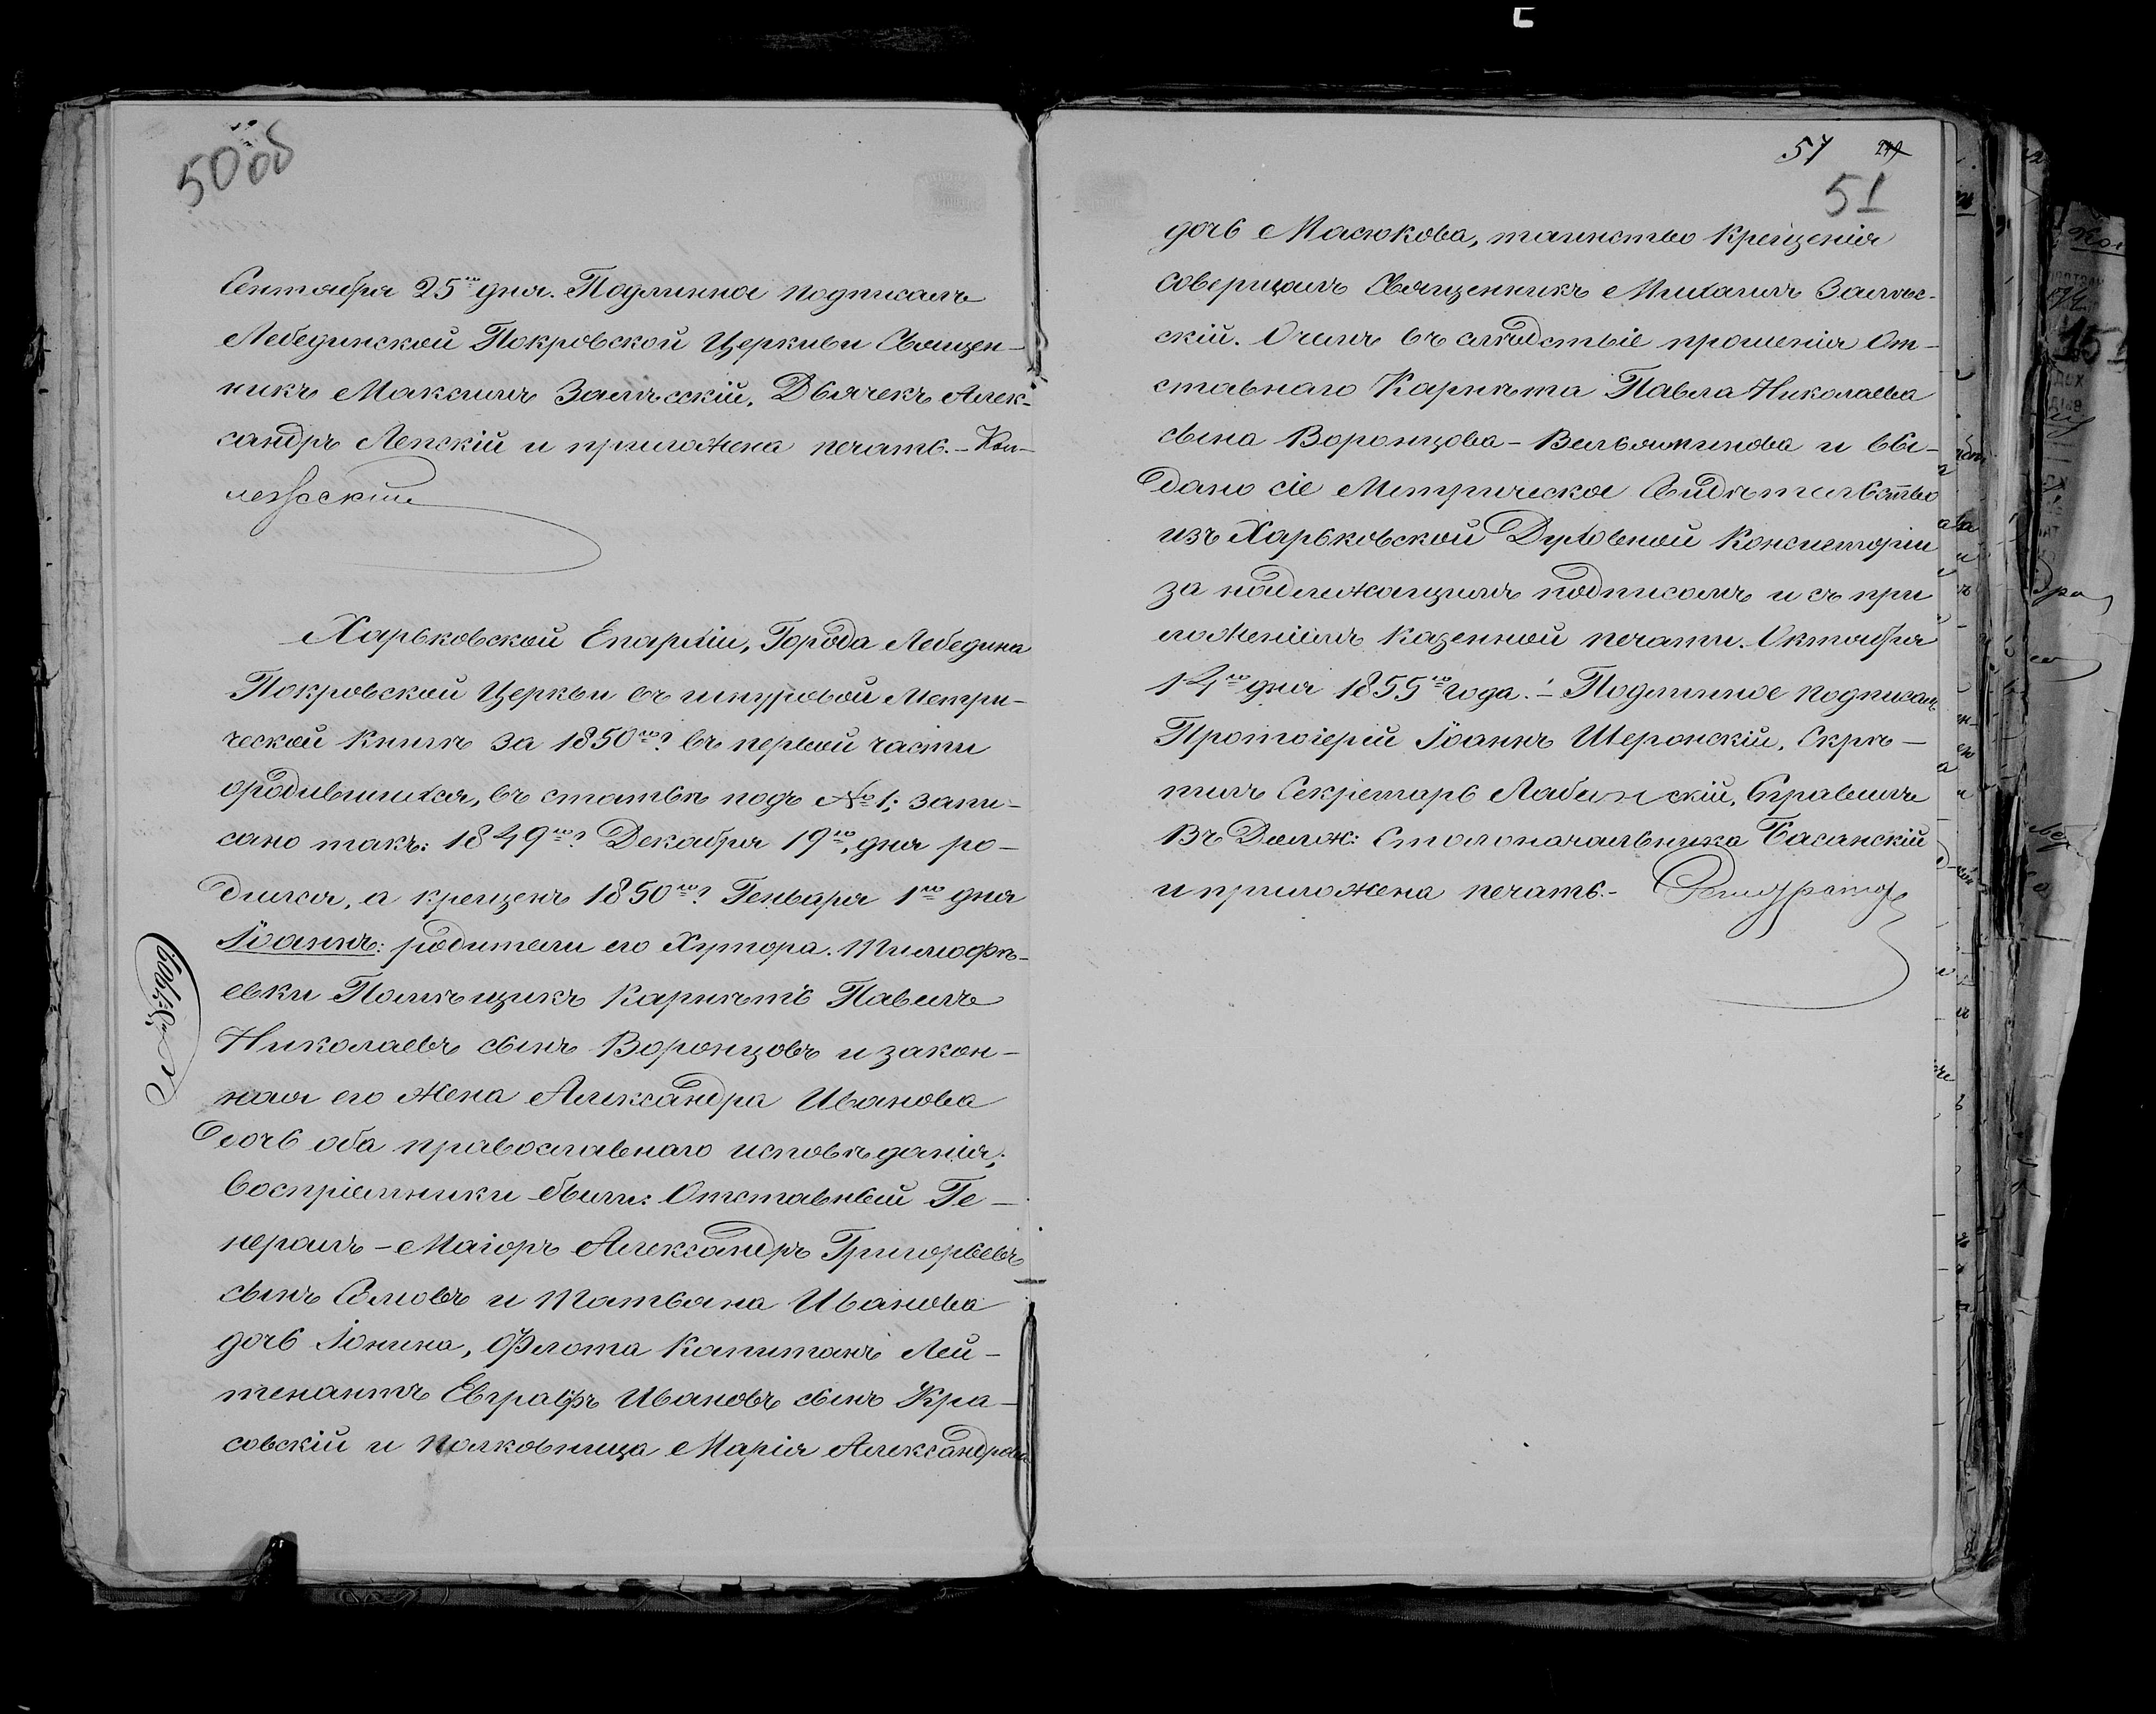 50 об
Сентября 25го дня. Подлинное подписалъ
Лебединской Покровской Церкви Священ-
никъ Максимъ Залѣсскій, Дьячекъ Алек-
сандръ Лепскій и приложена печать. -
Харьковской Епархіи, Города Лебедина
Покровской Церкви въ шнуровой Метри-
ческой книгѣ за 1850го въ первой части
ородившихся, въ статьѣ подъ № 1; запи-
сано такъ: 1849го Декабря 19го, дня ро-
дился, а крещенъ 1850го Генваря 1го дня
Іоаннъ: родители его Хутора Тимофѣ-
евки Помѣщикъ Карнетъ Павелъ
Николаевъ сынъ Воронцовъ и закон-
ная его жена Александра Иванова
дочь оба православнаго исповѣданія;
воспріемники были: Отставный Ге-
нералъ-Маіоръ Александръ Григорьевъ
сынъ и Татьяна Иванова
дочь Іонина, Флота Капитанъ Лей-
тенантъ Евграфъ Ивановъ сынъ Кра-
совскій и полковница Марія Александрова
51
51
дочь Масюкова, таинство крещенія
совершалъ Священникъ Михаилъ Залѣс-
скій. О чемъ въ слѣдствіе прошенія От-
ставнаго Карнета Павла Николаева
сына Воронцова-Вельяминова и вы-
дано сіе Метрическое Свидѣтельство
изъ Харьковской Духовной Консисторіи
за надлежащимъ подписомъ и съ при
ложеніемъ казенной печати. Октября
14го дня 1855го года. - Подлинное подписалъ
Протоіерей Іоаннъ Шеронскій, Скрѣ-
пилъ Секретарь скій, Справилъ
Въ Долж: Столоначальника Басанскій
и приложена печать. -